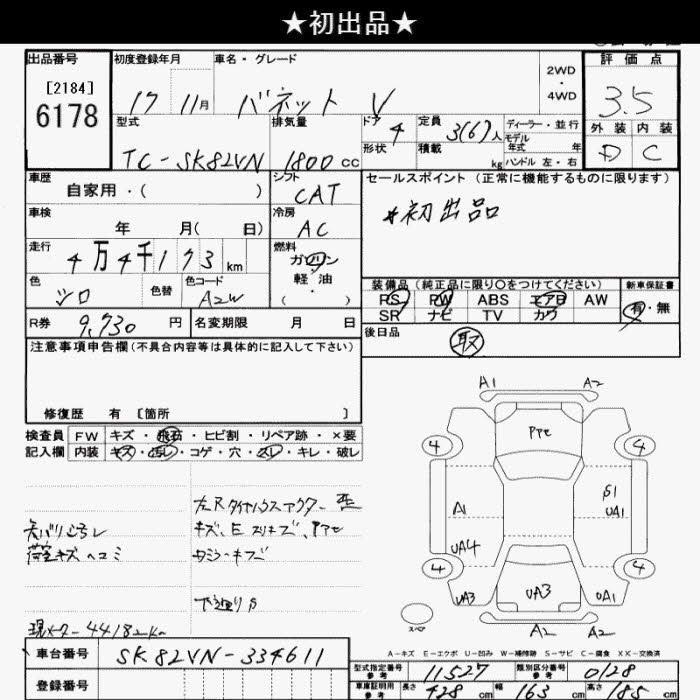 ★初出品★
出品番号 初度登録年月 車名・グレード 2WD・4WD 評価点
[2184]
6178
17 11月 バネット V 3.5
外装 内装
D C
型式 排気量 ドア 4 定員 3(6)人 ディーラー・並行
形状 積載 kg モデル年式 年
ハンドル 左・右
TC-SK82VN 1800cc
車歴 シフト セールスポイント(正常に機能するものに限ります)
自家用・( ) CAT
*初出品
車検 冷房
年 月( 日) AC
走行 燃料
4万4千173km ガソリン・軽油・( )
色 色替 色コード
シロ A2W
装備品(純正品に限り○をつけてください) 新車保証書
PS PW ABS エアB AW 有・無
SR ナビ TV カワ
R券 9,730円 名変期限 月 日
後日品
取
注意事項申告欄(不具合内容等は具体的に記入して下さい)
修復歴 有 [箇所 ]
検査員 FW キズ・飛石・ヒビ割・リペア跡・×要
記入欄 内装 キズ・汚レ・コゲ・穴・スレ・キレ・破レ
キズ、E
荷室キズ ヘコミ
下廻りサ
現メーター 44182km
A1 A2
PPE
4 4
A1 S1
UA1
UA4
4 4
UA3 UA3 UA1
スペア A2 A2
A-キズ E-エクボ U-凹み W-補修跡 S-サビ C-腐食 XX-交換済
車台番号 SK82VN-334611
登録番号
型式指定番号 参考 11527 類別区分番号 参考 0128
車庫証明用 参考 長さ 428cm 幅 163cm 高さ 185cm